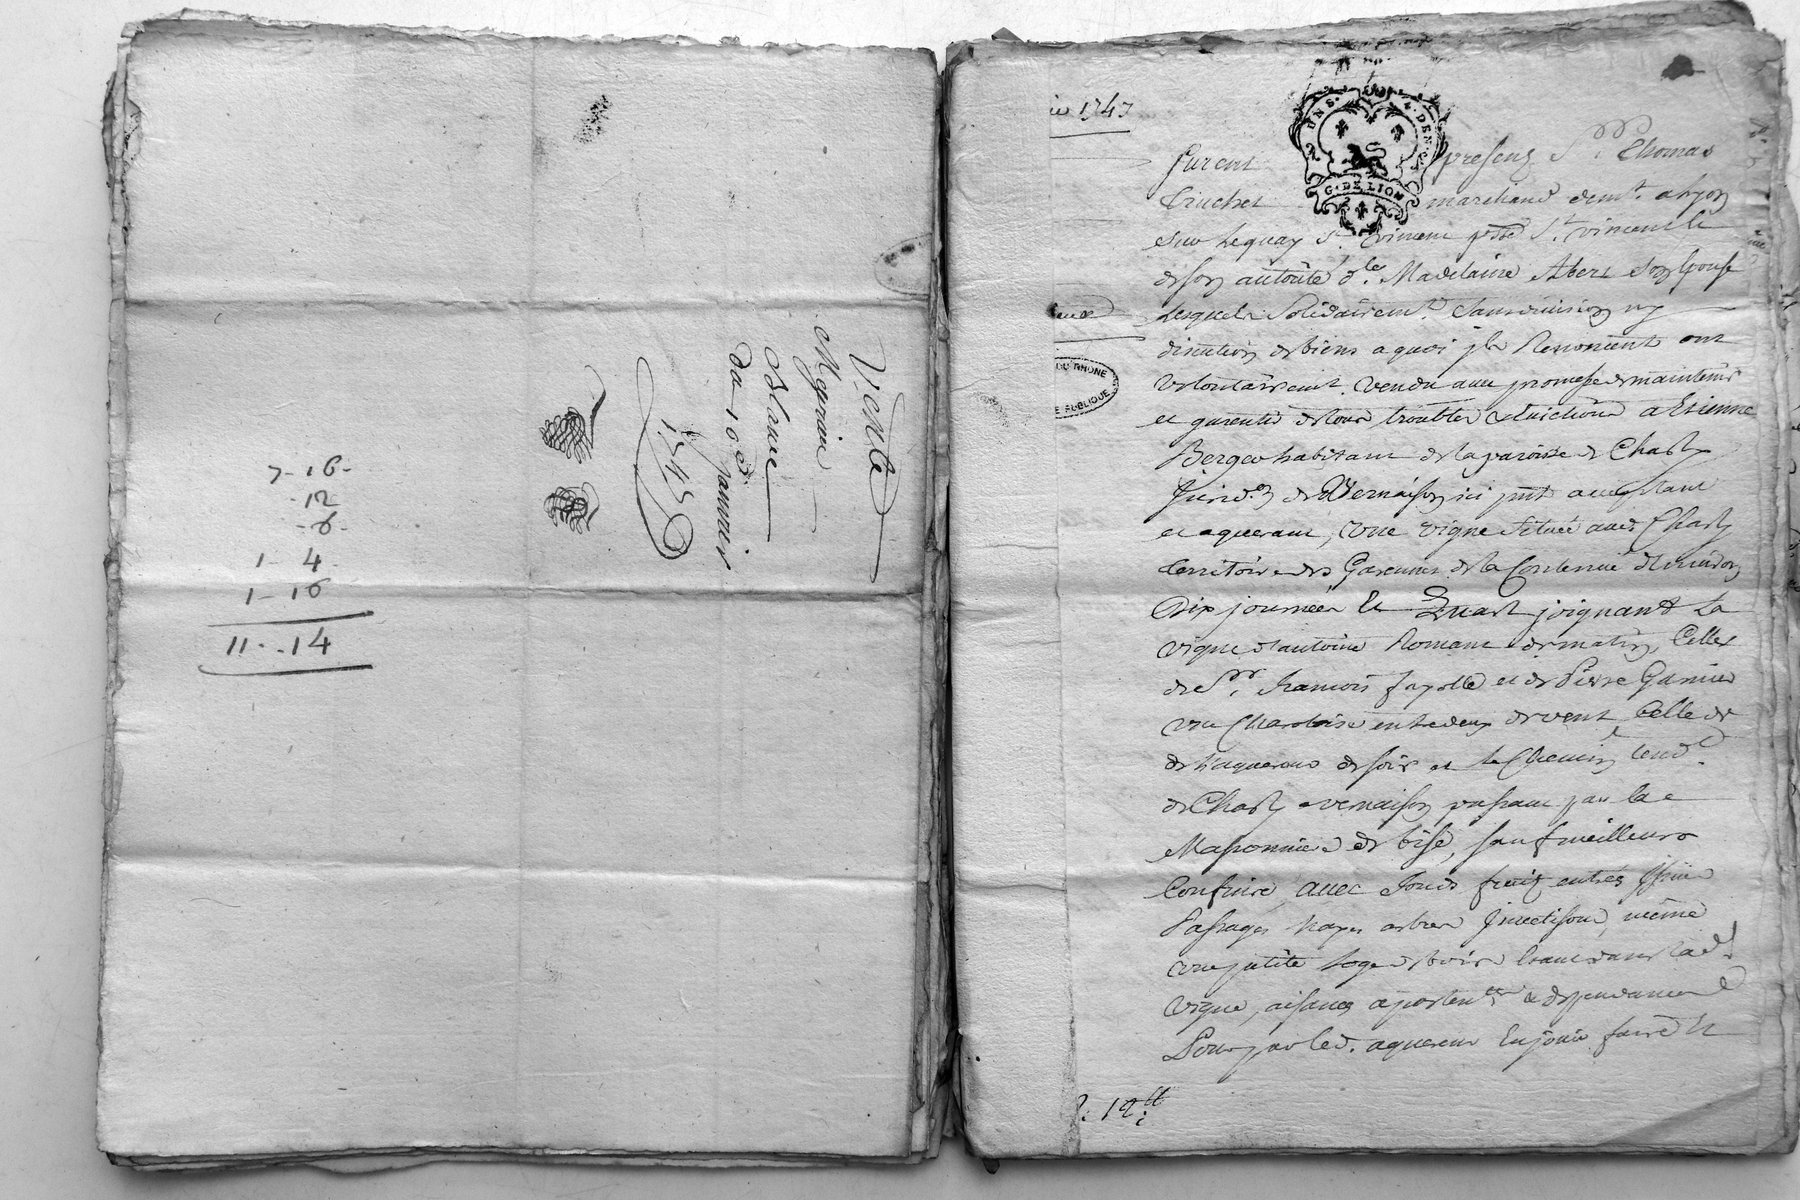 Vente
Meyrieu
Blanc
du 10e janvier
1745
7-16-
-12
-6-
1-4-
1-16
11--14
1747
UNS. 4. DEN.
G. DE LION
furent presens Sr. Thomas
Cruchet marchand demt. a lyon
sur le quay St. vincent psse St. vincent et
de son autorité dle. Madelaine Abert son Epouse
lesquels Solidairemt. sans division ny
discution de biens a quoi jls Renoncent ont
volontairemt. vendu avec promesse de maintenir
et garentir de tous troubles et
a Etienne
Berger habitant de la paroisse de Charly
de Vernaison ici pnt acceptant
et aquerant, une vigne située aud. Charly
territoire des Garennes de la Contenue d'environ
Dix journées et Quart joignant La
vigne d'antoine Romane de matin, Celles
de Sr. francois fayolle et de Pierre Garnier
vie Charoloise entredeux de vent Celle de
de l'aquereur de soir et le Chemin tend.
de Charly a vernaison passant par la
Massonniere de bise, sauf meilleurs
Confins, avec fonds fruits entrés
Passages hayes arbres même
une petite loge de bois etant dans lad.
vigne, aisances apartences & dependances
Pour par led. aquereur En jouir faire Et
DU RHONE
PUBLIQUE
12tt